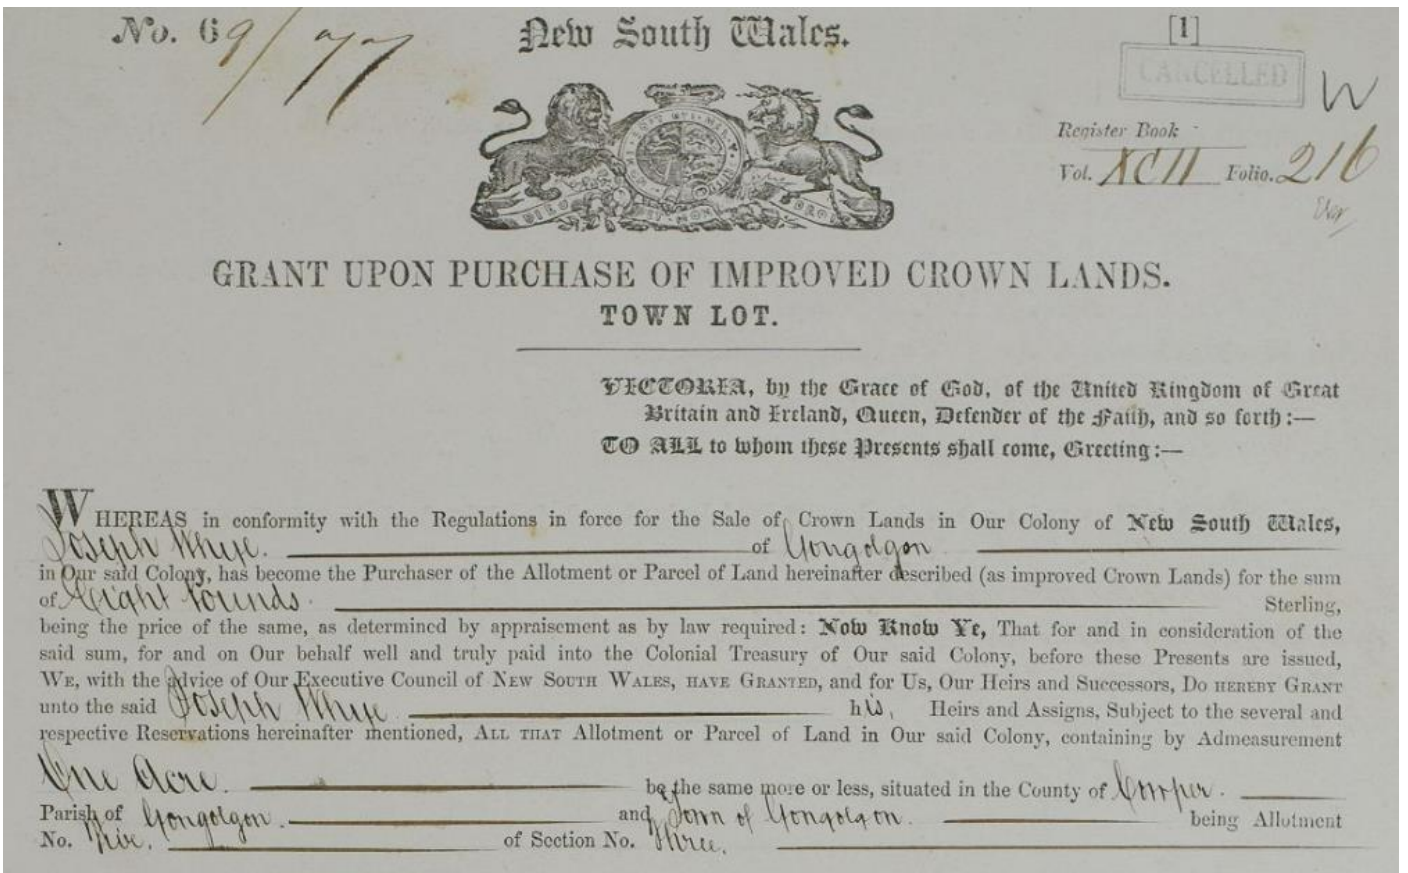 No. 69/77
New South Wales.
[1]
CANCELLED
W
Register Book
Vol. XCII Folio. 216
DIEU ET MON DROIT
GRANT UPON PURCHASE OF IMPROVED CROWN LANDS.
TOWN LOT.
VICTORIA, by the Grace of God, of the United Kingdom of Great
Britain and Ireland, Queen, Defender of the Faith, and so forth:—
TO ALL to whom these Presents shall come, Greeting:—
WHEREAS in conformity with the Regulations in force for the Sale of Crown Lands in Our Colony of New South Wales,
Joseph Whye. of Gongolgon
in Our said Colony, has become the Purchaser of the Allotment or Parcel of Land hereinafter described (as improved Crown Lands) for the sum
of Eight Pounds. Sterling,
being the price of the same, as determined by appraisement as by law required: Now Know Ye, That for and in consideration of the
said sum, for and on Our behalf well and truly paid into the Colonial Treasury of Our said Colony, before these Presents are issued,
WE, with the advice of Our Executive Council of NEW SOUTH WALES, HAVE GRANTED, and for Us, Our Heirs and Successors, DO HEREBY GRANT
unto the said Joseph Whye. his, Heirs and Assigns, Subject to the several and
respective Reservations hereinafter mentioned, ALL THAT Allotment or Parcel of Land in Our said Colony, containing by Admeasurement
One Acre. be the same more or less, situated in the County of Cowper.
Parish of Gongolgon. and Town of Gongolgon. being Allotment
No. Five. of Section No. Three.